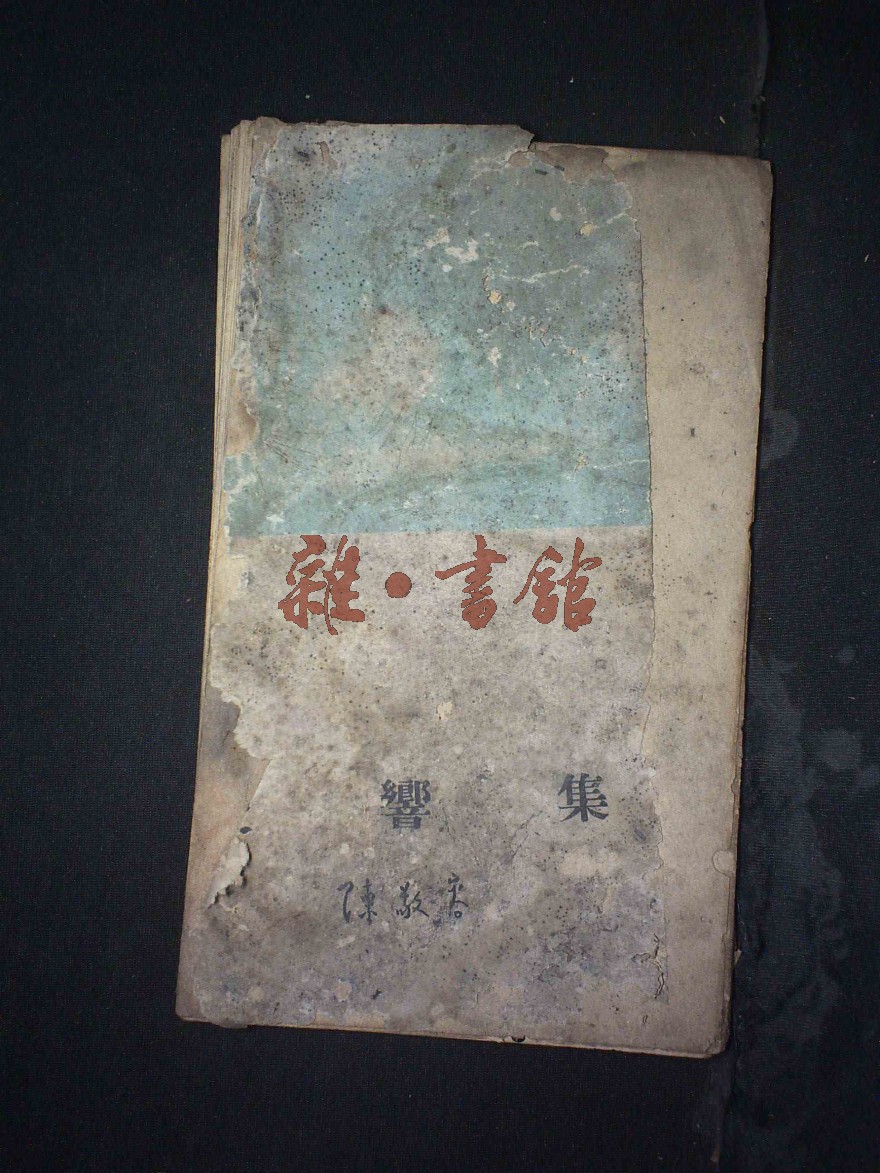 雜·書館
響集
陳敬容